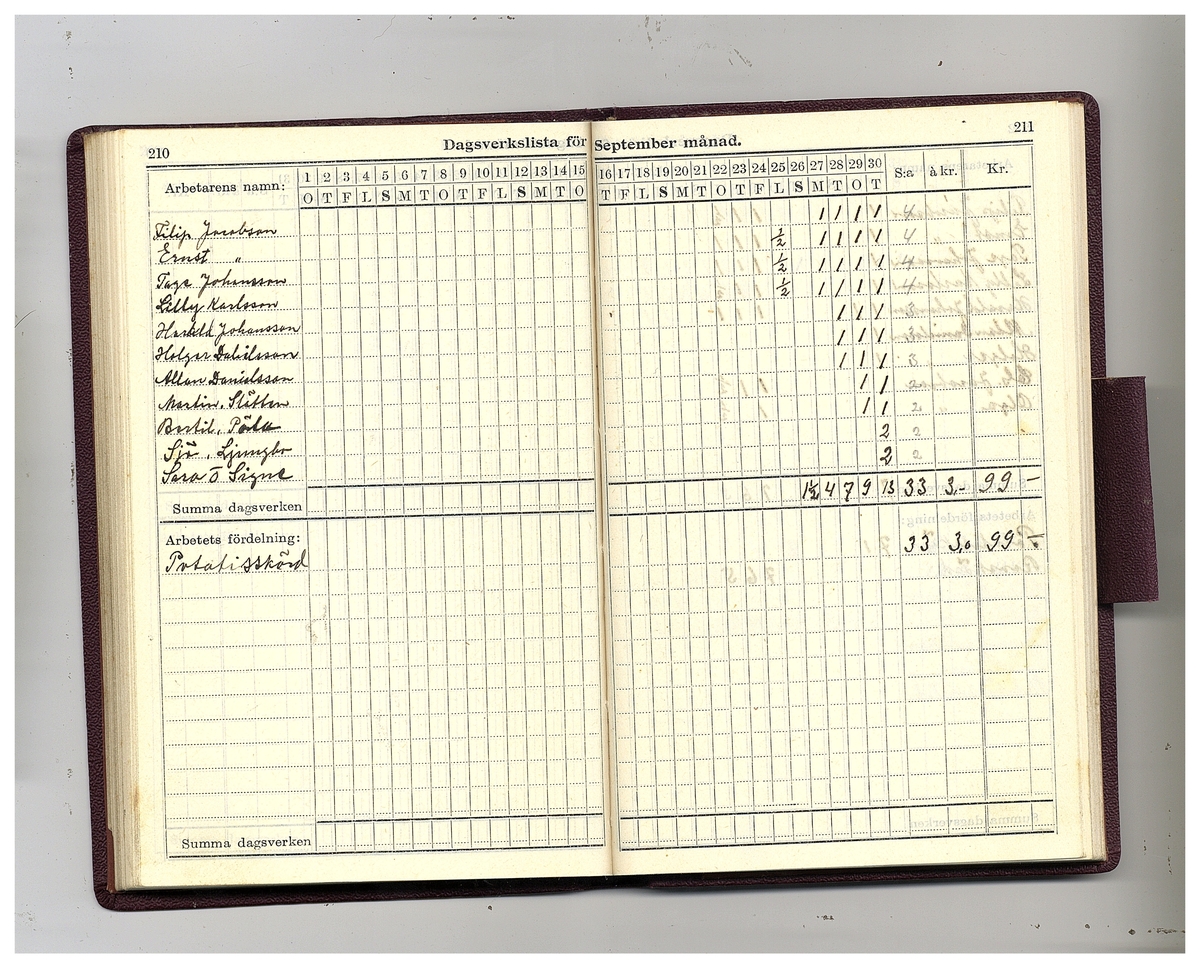 210 Dagsverkslista för September månad. 211
Arbetarens namn: 1 2 3 4 5 6 7 8 9 10 11 12 13 14 15 16 17 18 19 20 21 22 23 24 25 26 27 28 29 30 S:a à kr. Kr.
O T F L S M T O T F L S M T O T F L S M T O T F L S M T O T
Filip Jacobson 1 1 1 1 4
Ernst " ½ 1 1 1 1 4
Tage Johansson ½ 1 1 1 1 4
Lilly Karlsson ½ 1 1 1 1 4
Harald Johansson 1 1 1 3
Holger Danielsson 1 1 1 3
Allan Danielsson 1 1 1 3
Martin, Slätten 1 1 2
Bertil, 1 1 2
Sjö, Ljungbo 2 2
Sara o Signe 2 2
Summa dagsverken 1½ 4 7 9 13 33 3,- 99 -
Arbetets fördelning:
Potatisskörd 33 3,0 99 -
Summa dagsverken